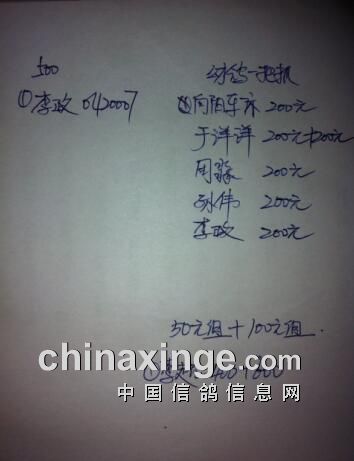 500
①李政 0420007
幼鸽一把抓
向阳车床 200元
于洋洋 200元+200元
周淼 200元
孙伟 200元
李政 200元
50元组+100元组.
chinaxinge.com
①李政 400+800
中国信鸽信息网